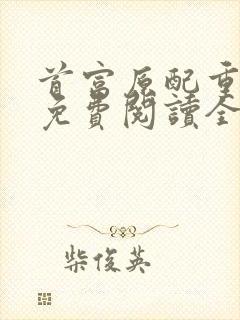 首富原配重
免費閱讀全
柴俊英